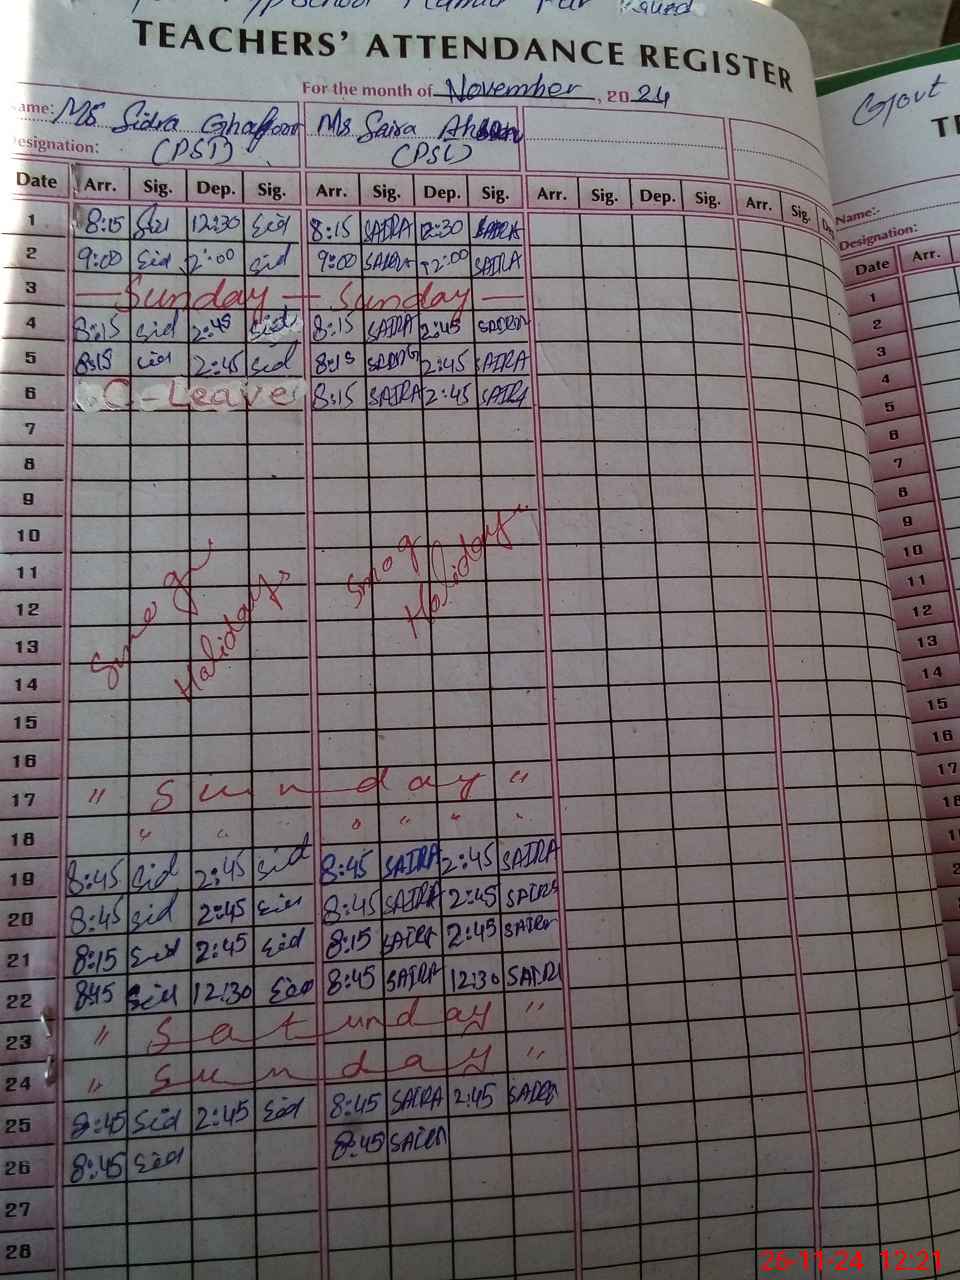 TEACHERS' ATTENDANCE REGISTER
For the month of November, 2024
Name: Ms Sidra Ghafoor Ms Saira Ahsan
Designation: (PST) (PST)
Date Arr. Sig. Dep. Sig. Arr. Sig. Dep. Sig. Arr. Sig. Dep. Sig. Arr. Sig.
1 8:15 Sid 12:30 Sid 8:15 SAIRA 12:30 SAIRA
2 9:00 Sid 2:00 Sid 9:00 SAIRA 12:00 SAIRA
3 — Sunday — Sunday —
4 8:15 Sid 2:45 Sid 8:15 SAIRA 2:45 SAIRA
5 8:15 Sid 2:45 Sid 8:15 SAIRA 2:45 SAIRA
6 C-Leave 8:15 SAIRA 2:45 SAIRA
7
8
9
10
11
12
13
14
Smog Holidays Smog Holidays
15
16
17 " Sunday "
18 " " " " " "
19 8:45 Sid 2:45 Sid 8:45 SAIRA 2:45 SAIRA
20 8:45 Sid 2:45 Sid 8:45 SAIRA 2:45 SAIRA
21 8:15 Sid 2:45 Sid 8:15 SAIRA 2:45 SAIRA
22 8:45 Sid 12:30 Sid 8:45 SAIRA 12:30 SAIRA
23 " Saturday "
24 " Sunday "
25 8:45 Sid 2:45 Sid 8:45 SAIRA 2:45 SAIRA
26 8:45 Sid 8:45 SAIRA
27
28
Govt
TE
Name:-
Designation:
Date Arr.
1
2
3
4
5
6
7
8
9
10
11
12
13
14
15
16
17
18
26-11-24 12:21